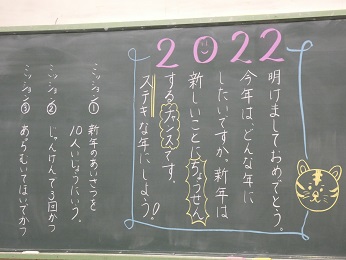 2022
明けましておめでとう。
今年は、どんな年に
したいですか。新年は
新しいことにちょうせん
するチャンスです。
ステキな年に、しよう!
ミッション① 新年のあいさつを
10人いじょうにいう。
ミッション② じゃんけんで3回かつ
ミッション③ あっちむいてほいでかつ